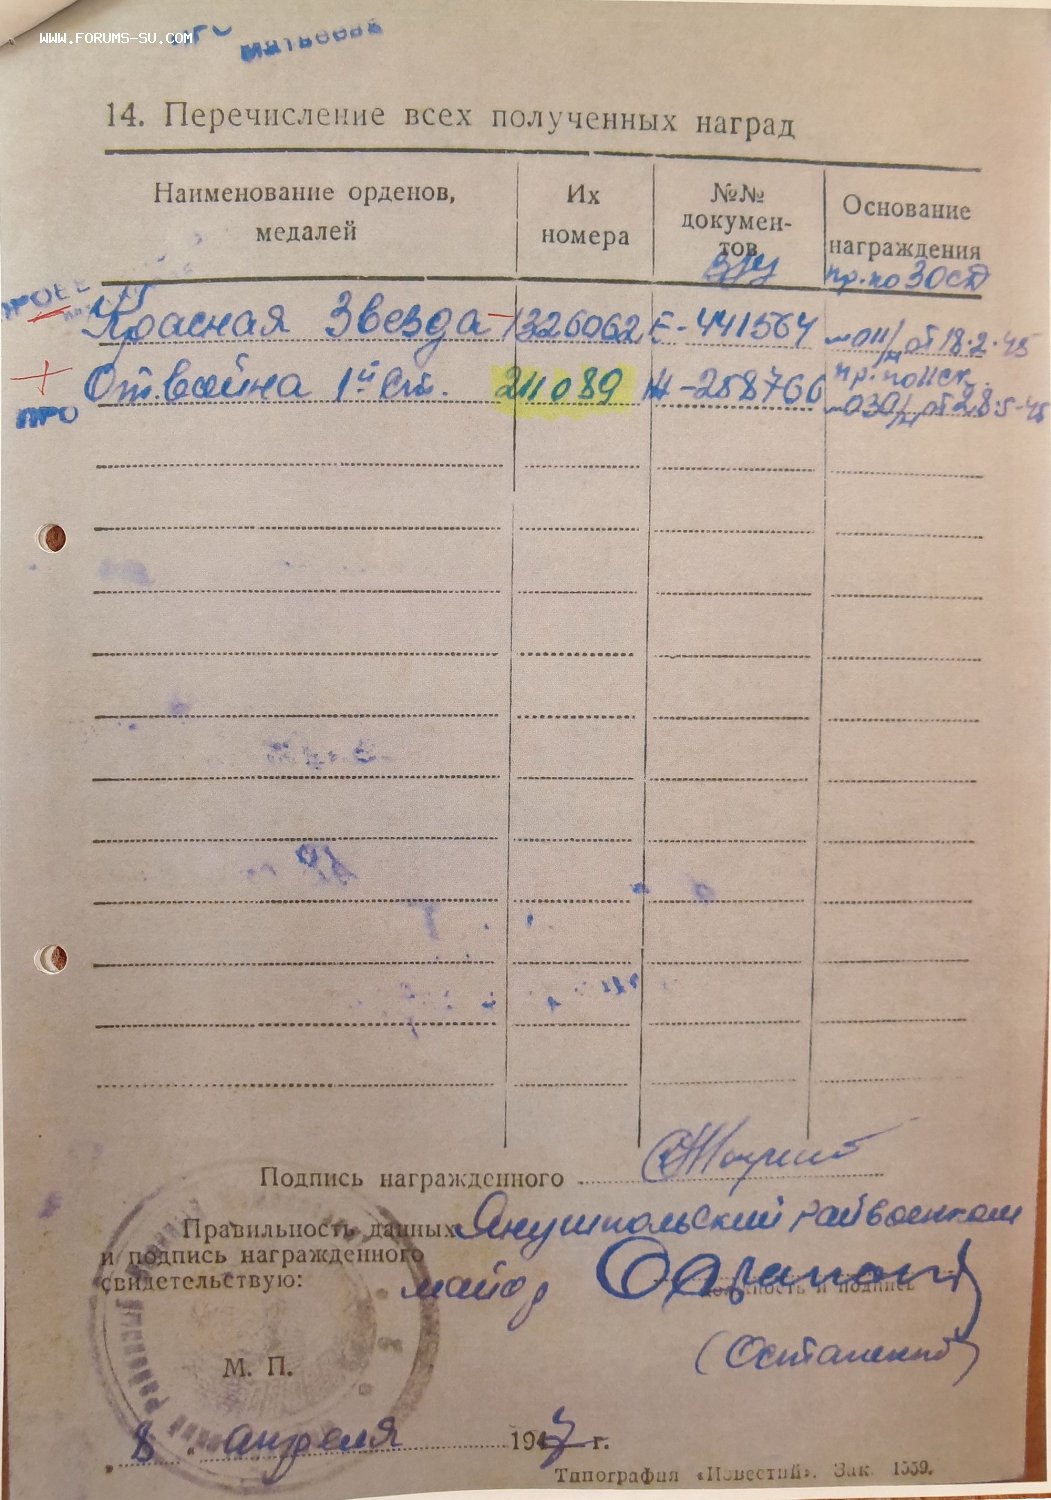 WWW.FORUMS-SU.COM
14. Перечисление всех полученных наград
Наименование орденов, медалей
Их номера
№№ докумен-тов
Основание награждения
пр. по 30 СД
Красная Звезда - 1326062 Е-441564 011/н от 18.2.45
От. война 1й ст. 211089 Н-258766 пр. по 11 ск 030/н от 28.5.45
ПРО
Подпись награжденного
Правильность данных Янушпольский райвоенком
и подпись награжденного
свидетельствую: майор
должность и подпись
М. П.
„ 8 “ апреля 1947 г.
Типография «Известий». Зак. 1559.